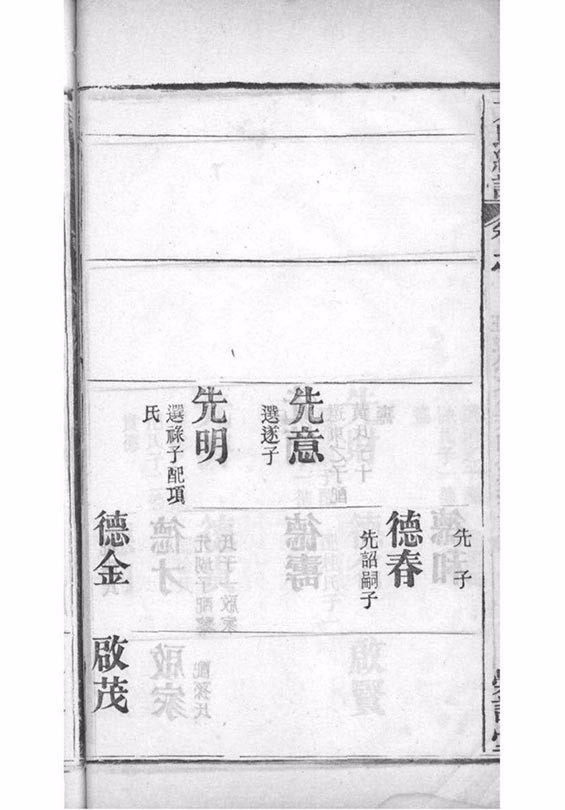 先 子
德春
先詔嗣子
先意
選遂子
先明
選祿子配項
氏
德金
啟茂